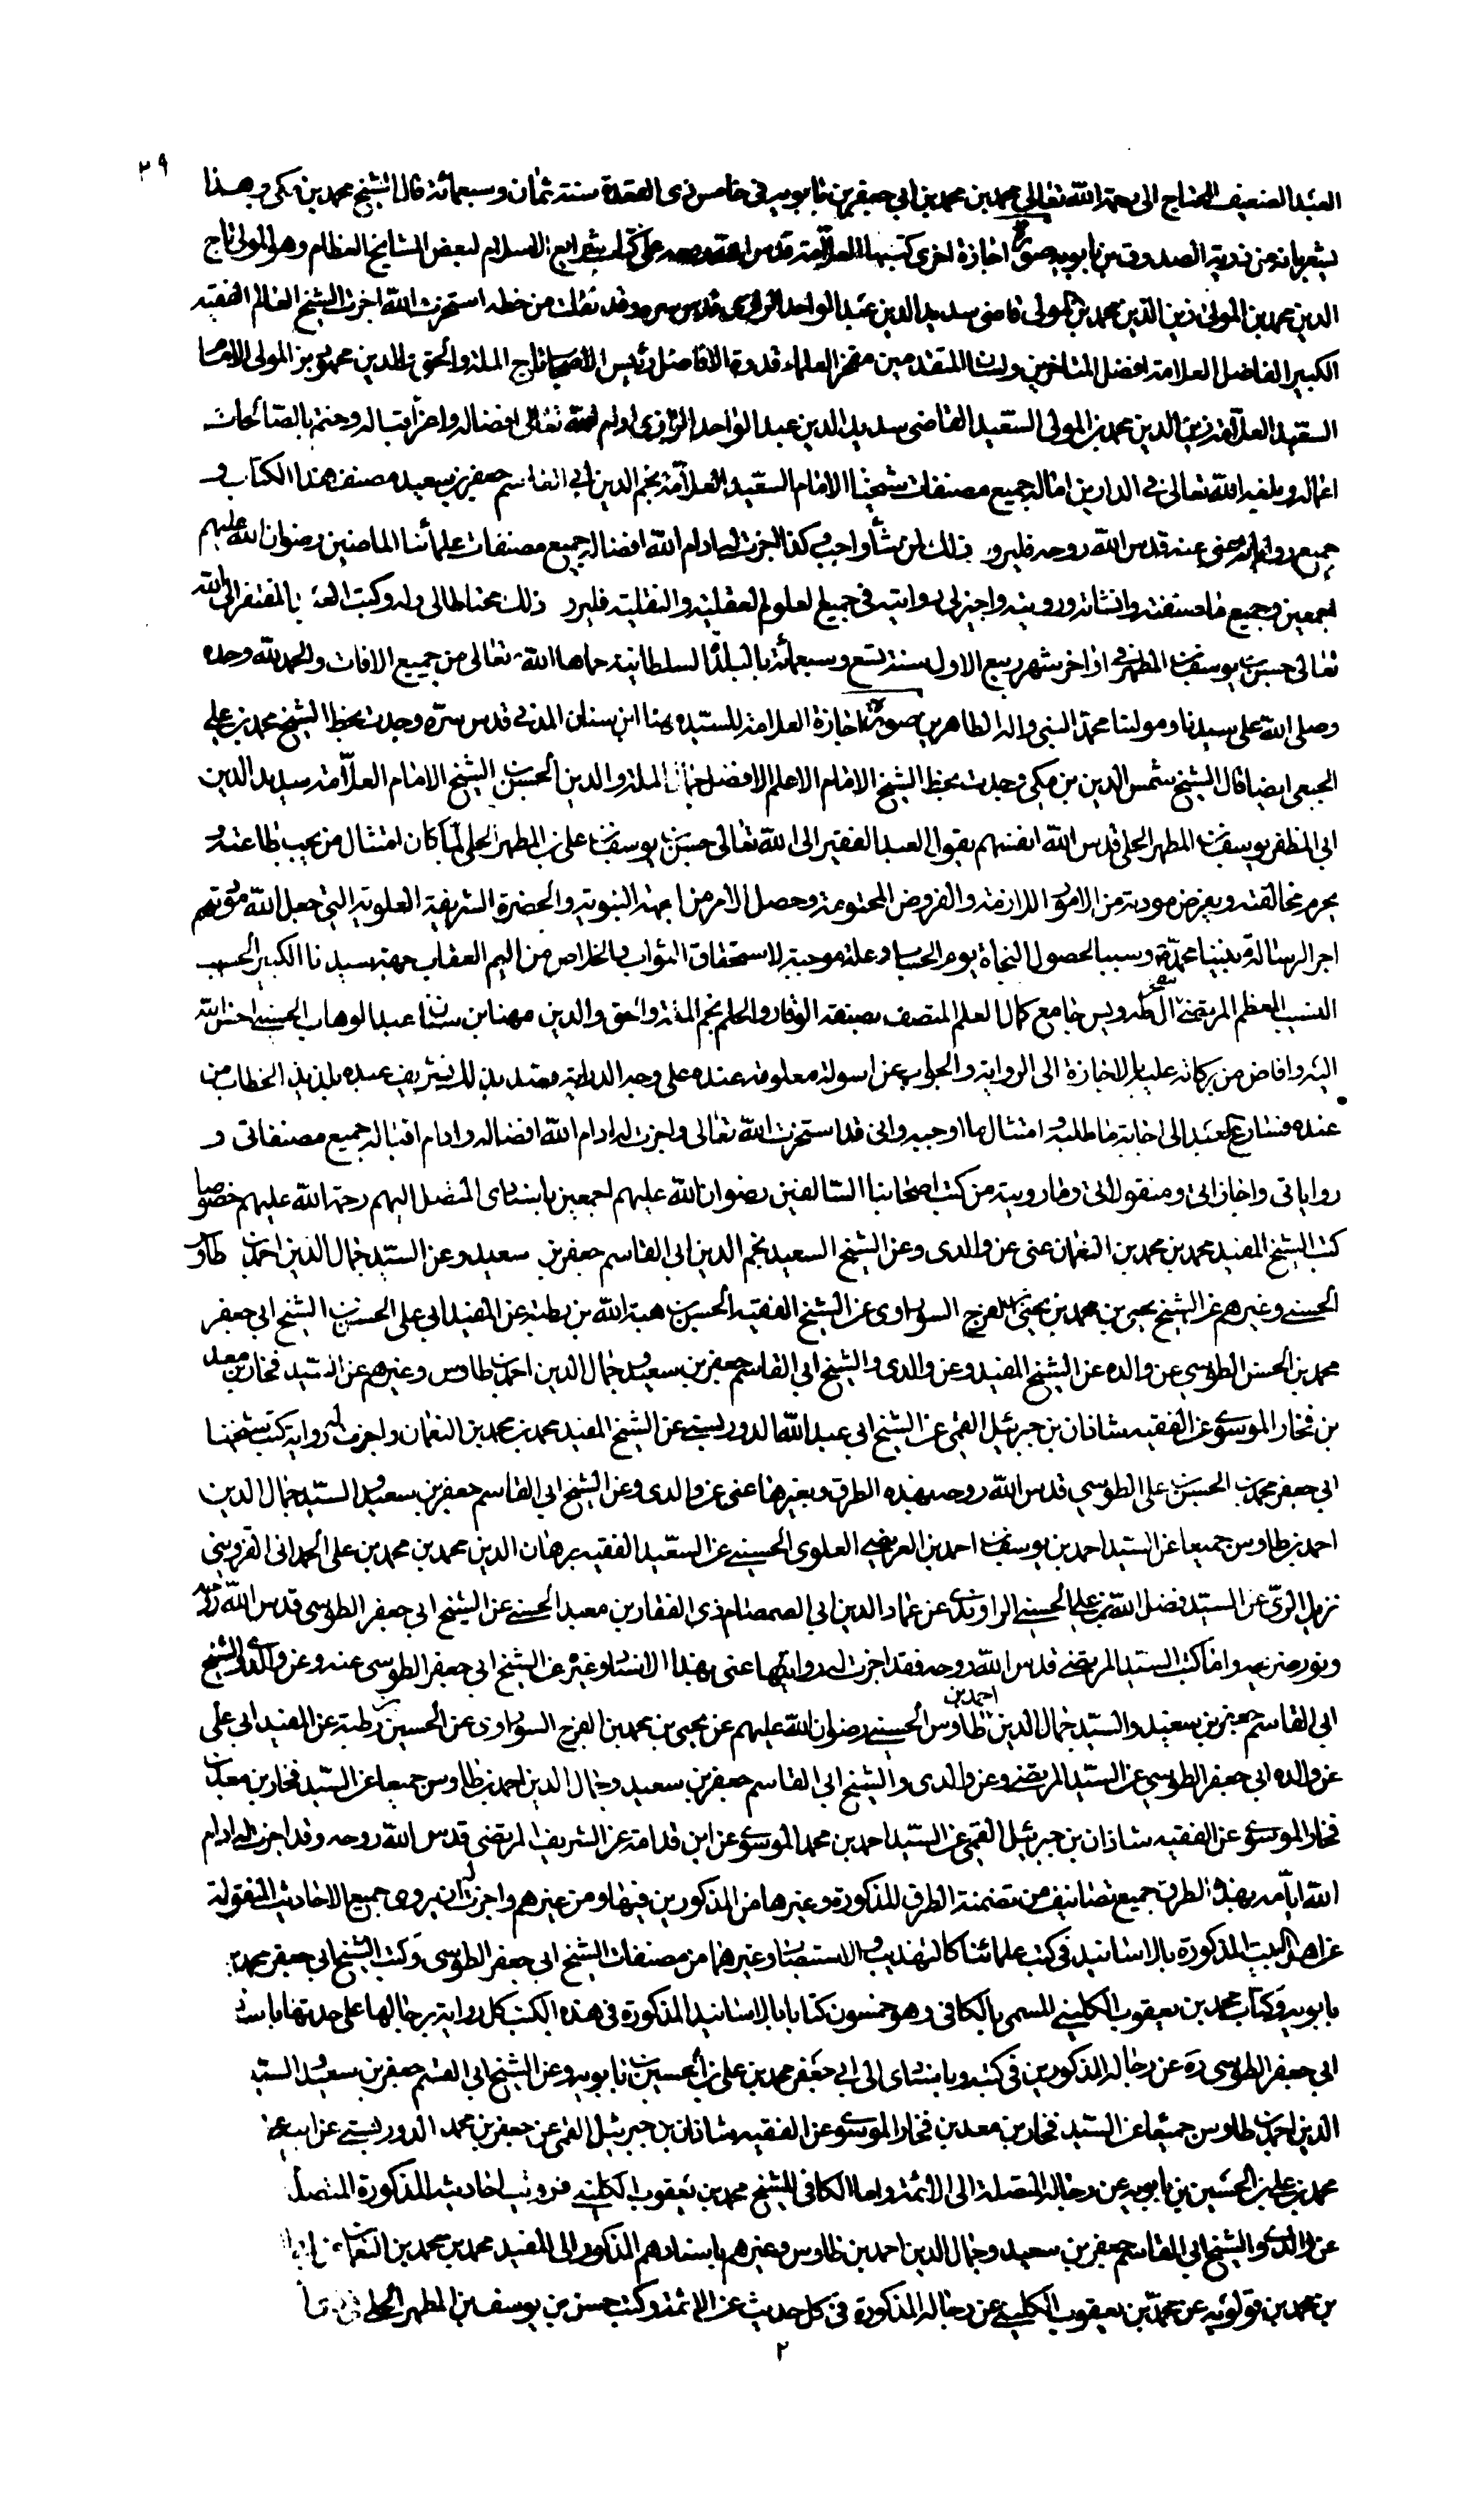 ٢٩
العبد الضعيف المحتاج الى رحمة الله تعالى محمد بن محمد بن ابي جعفر بن بابويه في خامس ذى القعدة سنة ثمان وسبعمائة قال الشيخ محمد بن مكى وهذا
يشعر بانه من ذرية الصدوق بن بابويه صورة اجازة اخرى كتبها العلامة قدس الله روحه على كتاب شرايع الاسلام لبعض المشايخ العظام وهو المولى تاج
الدين محمود بن المولى زين الدين محمد بن المولى قاضى سديد الدين عبد الواحد الرازى قدس سره وقد نقلت من خطه استخرت الله واجزت الشيخ العالم الفقيه
الكبير الفاضل العلامة افضل المتاخرين ولسان المتقدمين مفخر العلماء قدوة الافاضل رئيس الاصحاب تاج الملة والحق والدين محمود بن المولى الامام
السعيد العلامة زين الدين محمد بن المولى السعيد القاضى سديد الدين عبد الواحد الرازى ادام الله تعالى افضاله واعز اقباله وختم بالصالحات
اعماله وبلغه الله تعالى في الدارين اماله جميع مصنفات شيخنا الامام السعيد العلامة نجم الدين ابي القاسم جعفر بن سعيد مصنف هذا الكتاب و
جميع رواياته عنى عنه قدس الله روحه فليرو ذلك لمن شاء واحب وكذا اجزت له ادام الله افضاله جميع مصنفات علمائنا الماضين رضوان الله عليهم
اجمعين وجميع ما صنفته وانشاته ورويته واجيز لى روايته في جميع العلوم العقلية والنقلية فليرو ذلك محتاطا لى وله وكتب العبد المفتقر الى الله
تعالى حسن بن يوسف بن المطهر في اواخر شهر ربيع الاول سنة تسع وسبعمائة بالبلدة السلطانية حماها الله تعالى من جميع الافات والحمد لله وحده
وصلى الله على سيدنا ومولنا محمد النبي واله الطاهرين صورة اجازة العلامة للسيد مهنا ابن سنان المدني قدس سره وجدت بخط الشيخ محمد بن علي
الجبعى ايضا قال الشيخ شمس الدين بن مكى وجدت بخط الشيخ الامام الاعلم الافضل جمال الملة والدين الحسن بن الشيخ الامام العلامة سديد الدين
ابي المظفر يوسف بن المطهر الحلى قدس الله انفسهم يقول العبد الفقير الى الله تعالى حسن بن يوسف بن على بن المطهر الحلى لما كان امتثال من يجب طاعته و
يحرم مخالفته ويفرض مودته من الامور اللازمة والفروض المحتومة وحصل الامر من الجهة النبوية والحضرة الشريفة العلوية التي جعل الله مودتهم
اجر الرسالة نبينا محمد وسببا لحصول النجاة يوم الحساب وعلة موجبة لاستحقاق الثواب والخلاص من اليم العقاب جهة سيدنا الكبير الحسيب
النسيب المعظم المرتضى مفخر ال طه ويس جامع كمال العلم المتصف بصفة الوقار والحلم نجم الملة والحق والدين مهنا بن سنان بن عبد الوهاب الحسينى احسن الله
اليه وافاض من بركاته عليه بالاجازة الى الرواية والجواب عن اسولة معلومة عنده على وجه الدراية قصد بذلك تشريف عبده بلذيذ الخطاب من
عنده فسارع العبد الى اجابة ما طلبه و امتثال ما اوجبه وانى قد استخرت الله تعالى واجزت له ادام الله افضاله وادام اقباله جميع مصنفاتى و
رواياتى واجازاتى ومنقولاتى وما رويته من كتب اصحابنا السالفين رضوان الله عليهم اجمعين باسنادى المتصل اليهم رحمة الله عليهم خصوصا
كتب الشيخ المفيد محمد بن محمد بن النعمان عنى عن والدى وعن الشيخ السعيد نجم الدين ابي القاسم جعفر بن سعيد وعن السيد جمال الدين احمد بن طاوس
الحسنى وغيرهم عن الشيخ يحيى بن محمد بن يحيى بن الفرج السوراوى عن الشيخ الفقيه الحسين بن هبة الله بن رطبة عن المفيد ابي على الحسن بن الشيخ ابي جعفر
محمد بن الحسن الطوسى عن والده عن الشيخ المفيد وعن والدى والشيخ ابي القاسم جعفر بن سعيد وجمال الدين احمد بن طاوس وغيرهم عن السيد فخار بن معد
بن فخار الموسوى عن الفقيه شاذان بن جبرئيل القمى عن الشيخ ابي عبد الله الدوريستى عن الشيخ المفيد محمد بن محمد بن النعمان واجزت له رواية كتب شيخنا
ابي جعفر محمد بن الحسن بن على الطوسى قدس الله روحه بهذه الطرق وبغيرها عنى عن والدى وعن الشيخ ابي القاسم جعفر بن سعيد والسيد جمال الدين
احمد بن طاوس جميعا عن السيد احمد بن يوسف بن احمد بن العريضى العلوى الحسينى عن السعيد الفقيه برهان الدين محمد بن محمد بن على الحمدانى القزوينى
نزيل الرى عن السيد فضل الله بن على الحسينى الراوندى عن عماد الدين ابي الصمصام ذى الفقار بن معبد الحسنى عن الشيخ ابي جعفر الطوسى قدس الله روحه
ونور ضريحه واما كتب السيد المرتضى قدس الله روحه فقد اجزت له روايتها عنى بهذا الاسناد وغيره عن الشيخ ابي جعفر الطوسى عنه وعن والدى والشيخ
ابي القاسم جعفر بن سعيد والسيد جمال الدين احمد بن طاوس الحسينى رضوان الله عليهم عن يحيى بن محمد بن الفرج السوراوى عن الحسين بن رطبة عن المفيد ابي على
عن والده ابي جعفر الطوسى عن السيد المرتضى وعن والدى والشيخ ابي القاسم جعفر بن سعيد وجمال الدين احمد بن طاوس جميعا عن السيد فخار بن معد بن
فخار الموسوى عن الفقيه شاذان بن جبرئيل القمى عن السيد احمد بن محمد الموسوى عن ابن قدامة عن الشريف المرتضى قدس الله روحه وقد اجزت له ادام
الله ايامه بهذه الطرق جميع تصانيف من تضمنته الطرق المذكورة وغيرها من المذكورين فيها ومن غيرهم واجزت له ان يروى جميع الاحاديث المنقولة
عن اهل البيت المذكورة بالاسانيد في كتب علمائنا كالتهذيب والاستبصار وغيرهما من مصنفات الشيخ ابي جعفر الطوسى وكتب الشيخ ابي جعفر محمد بن
بابويه وكتاب محمد بن يعقوب الكلينى المسمى بالكافى وهو خمسون كتابا بالاسانيد المذكورة في هذه الكتب كل رواية برجالها على حدتها باسناد
ابي جعفر الطوسى ره عن رجاله المذكورين في كتبه وباسنادى الى ابي جعفر محمد بن على بن الحسين بن بابويه وعن الشيخ ابي القسم جعفر بن سعيد والسيد
الدين احمد بن طاوس جميعا عن السيد فخار بن معد بن فخار الموسوى عن الفقيه شاذان بن جبرئيل القمى عن جعفر بن محمد الدوريستى عن ابيه عن
محمد بن على بن الحسين بن بابويه عن رجاله المتصلة الى الائمة واما الكافى للشيخ محمد بن يعقوب الكلينى فرويت احاديثه المذكورة المتصلة
عن والدى والشيخ ابي القاسم جعفر بن سعيد وجمال الدين احمد بن طاوس وغيرهم باسنادهم المذكور الى المفيد محمد بن محمد بن النعمان
بن محمد بن قولويه عن محمد بن يعقوب الكلينى عن رجاله المذكورة في كل حديث عن الائمة وكتب حسن بن يوسف بن المطهر الحلى
٢